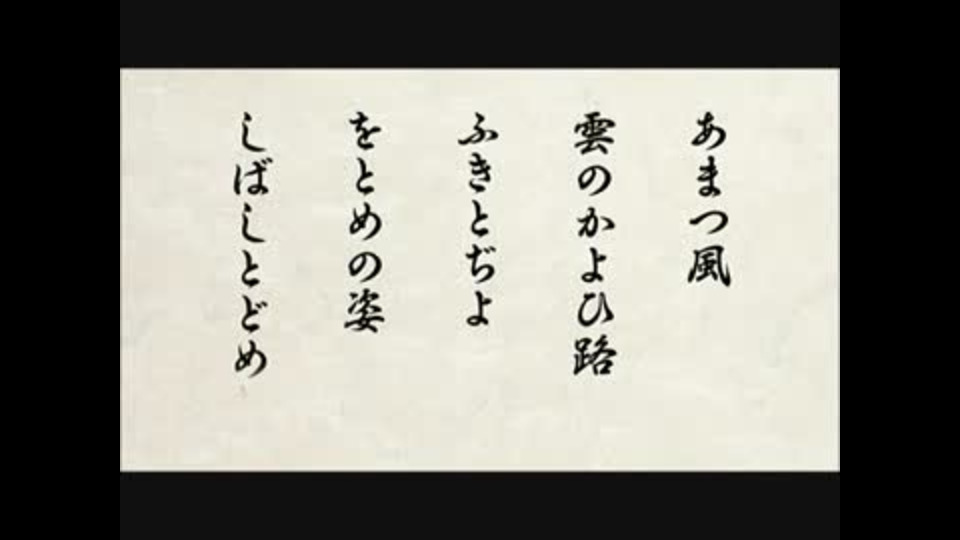 あまつ風
雲のかよひ路
ふきとぢよ
をとめの姿
しばしとどめ